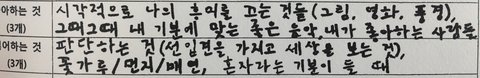 아하는 것 시각적으로 나의 흥미를 끄는 것들(그림, 영화, 풍경),
(3개) 그때그때 내 기분에 맞는 좋은 음악, 내가 좋아하는 사람들
어하는 것 판단하는 것(선입견을 가지고 세상을 보는 것),
(3개) 꽃가루/먼지/매연, 혼자라는 기분이 들 때